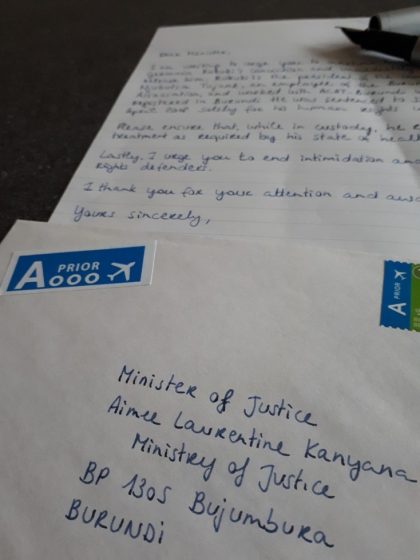 Dear Minister,
I am writing to urge you to
Germain Rukuki's conviction and
release him. Rukuki is the president of the
Njabutsa Tujane, an employee of the
Association, and worked with ACAT-Burundi
registered in Burundi. He was sentenced to
April solely for his human rights
Please ensure that, while in custody, he
treatment as required by his state of health
Lastly, I urge you to end intimidation
rights defenders.
I thank you for your attention and
Yours sincerely,
A PRIOR
A PRIOR
Minister of Justice
Aimee Laurentine Kanyana
Ministry of Justice
BP 1305 Bujumbura
BURUNDI